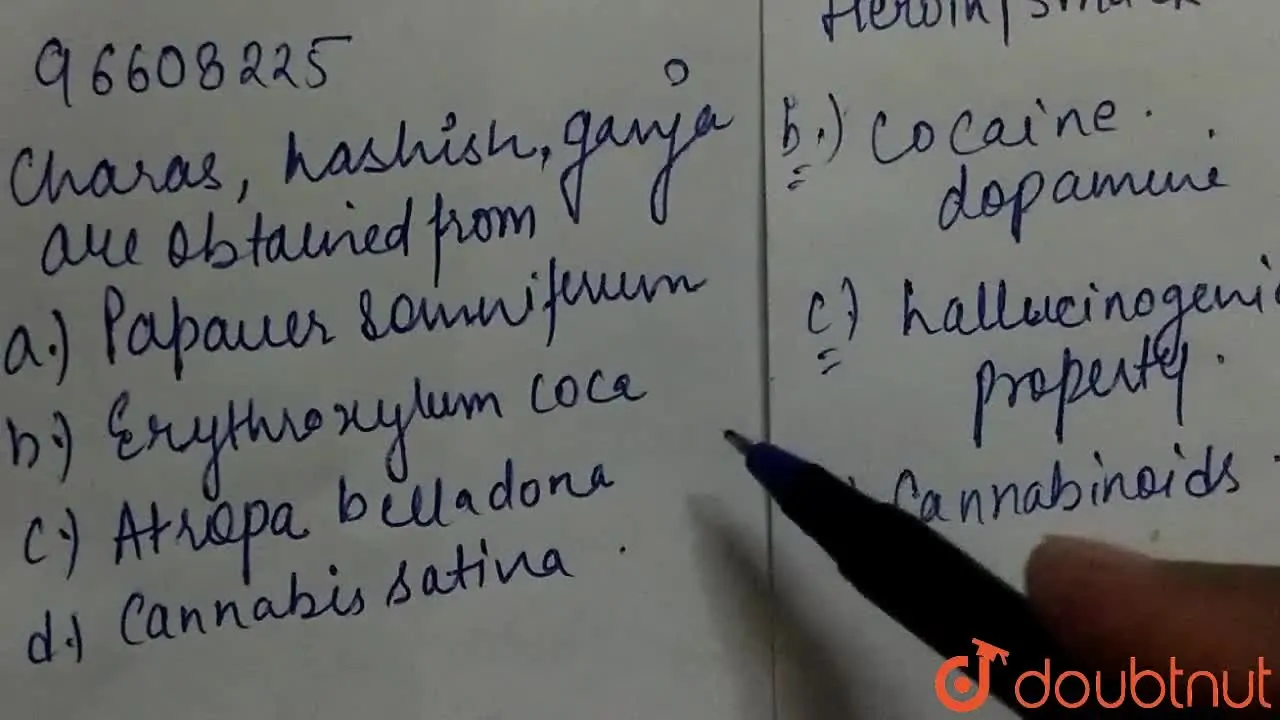 96608225
Charas, hashish, ganja
are obtained from
a.) Papaver somniferum
b.) Erythroxylum coca
c.) Atropa belladona
d.) Cannabis sativa.
Heroin/smack
b.) Cocaine.
dopamine
c.) hallucinogeni
property.
Cannabinoids
doubtnut